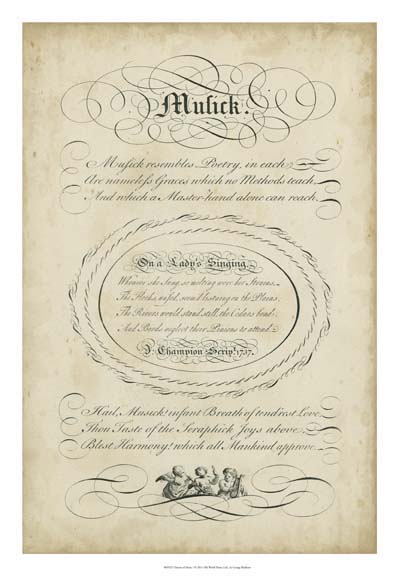 Musick.
Musick resembles Poetry, in each
Are nameless Graces which no Methods teach,
And which a Master-hand alone can reach.
On a Lady's Singing.
Whene'er she Sung, so melting were her Strains,
The Flocks, unfed, seem'd list'ning on the Plains;
The Rivers would stand still, the Cedars bend;
And Birds neglect their Pinions to attend.
J: Champion Scrip.t 1757.
Hail, Musick! infant Breath of tend'rest Love
Thou Taste of the Seraphick Joys above
Blest Harmony! which all Mankind approve.